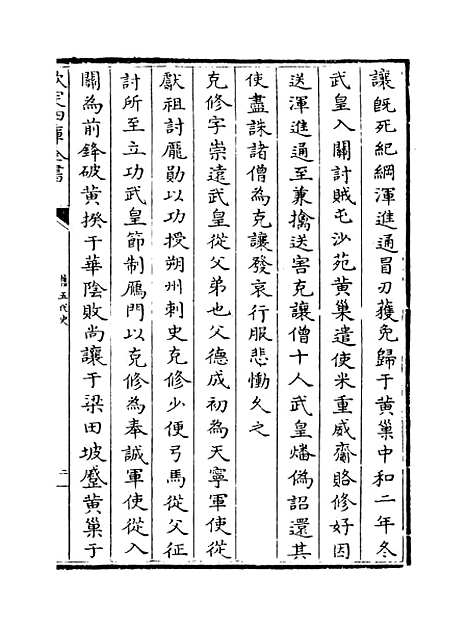 讓旣死紀綱渾進通冒刃獲免歸于黃巢中和二年冬
武皇入關討賊屯沙苑黃巢遣使米重威齎賂修好因
送渾進通至兼擒送害克讓僧十人武皇燔僞詔還其
使盡誅諸僧為克讓發哀行服悲慟久之
克修字崇遠武皇從父弟也父德成初為天寧軍使從
獻祖討龐勛以功授朔州刺史克修少便弓馬從父征
討所至立功武皇節制鴈門以克修為奉誠軍使從入
關為前鋒破黃揆于華陰敗尚讓于梁田坡蹙黃巢于
欽定四庫全書
舊五代史
二